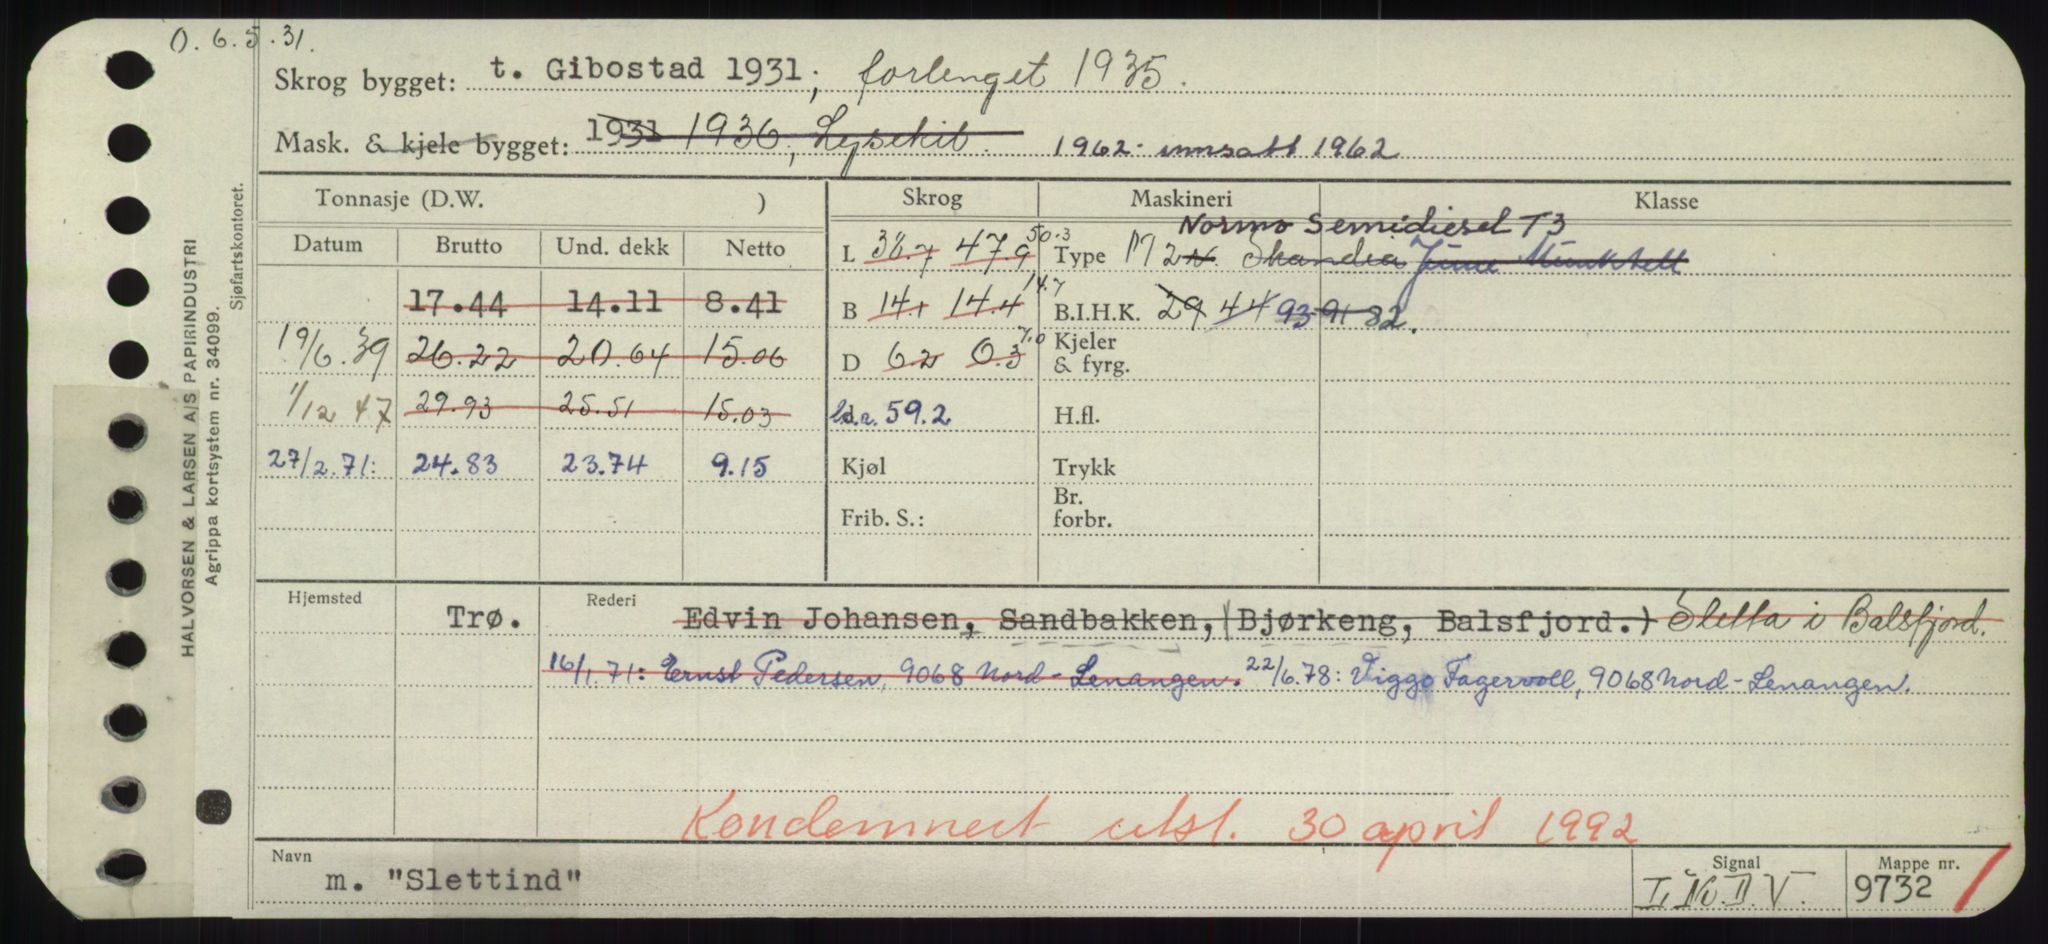 O. 6.5.31.
Skrog bygget: t. Gibostad 1931; forlenget 1935.
Mask. & kjele bygget: 1931 1936, Lysekil. 1962 - innsatt 1962
Tonnasje (D.W. ) Skrog Maskineri Klasse
Normo Semidiesel T3
Datum Brutto Und. dekk Netto L 38.7 47.9 50.3 Type M 2 Skandia June Munktell
17.44 14.11 8.41 B 14.1 14.4 14.7 B.I.H.K. 29 44 93 91 82.
19/6.39 26.22 20.64 15.06 D 6.2 6.3 7.0 Kjeler & fyrg.
1/12 47 29.93 25.51 15.03 59.2 H.fl.
27/2.71: 24.83 23.74 9.15 Kjøl Trykk
Frib. S.: Br. forbr.
Hjemsted Trø. Rederi Edvin Johansen, Sandbakken, (Bjørkeng, Balsfjord.) Sletta i Balsfjord.
16/1.71: Ernst Pedersen, 9068 Nord-Lenangen. 22/6.78: Viggo Fagervoll, 9068 Nord-Lenangen.
Kondemnert utsl. 30 april 1992
Navn m. "Slettind" Signal Mappe nr. 9732
HALVORSEN & LARSEN A/S PAPIRINDUSTRI
Agrippa kortsystem nr. 34099.
Sjøfartskontoret.